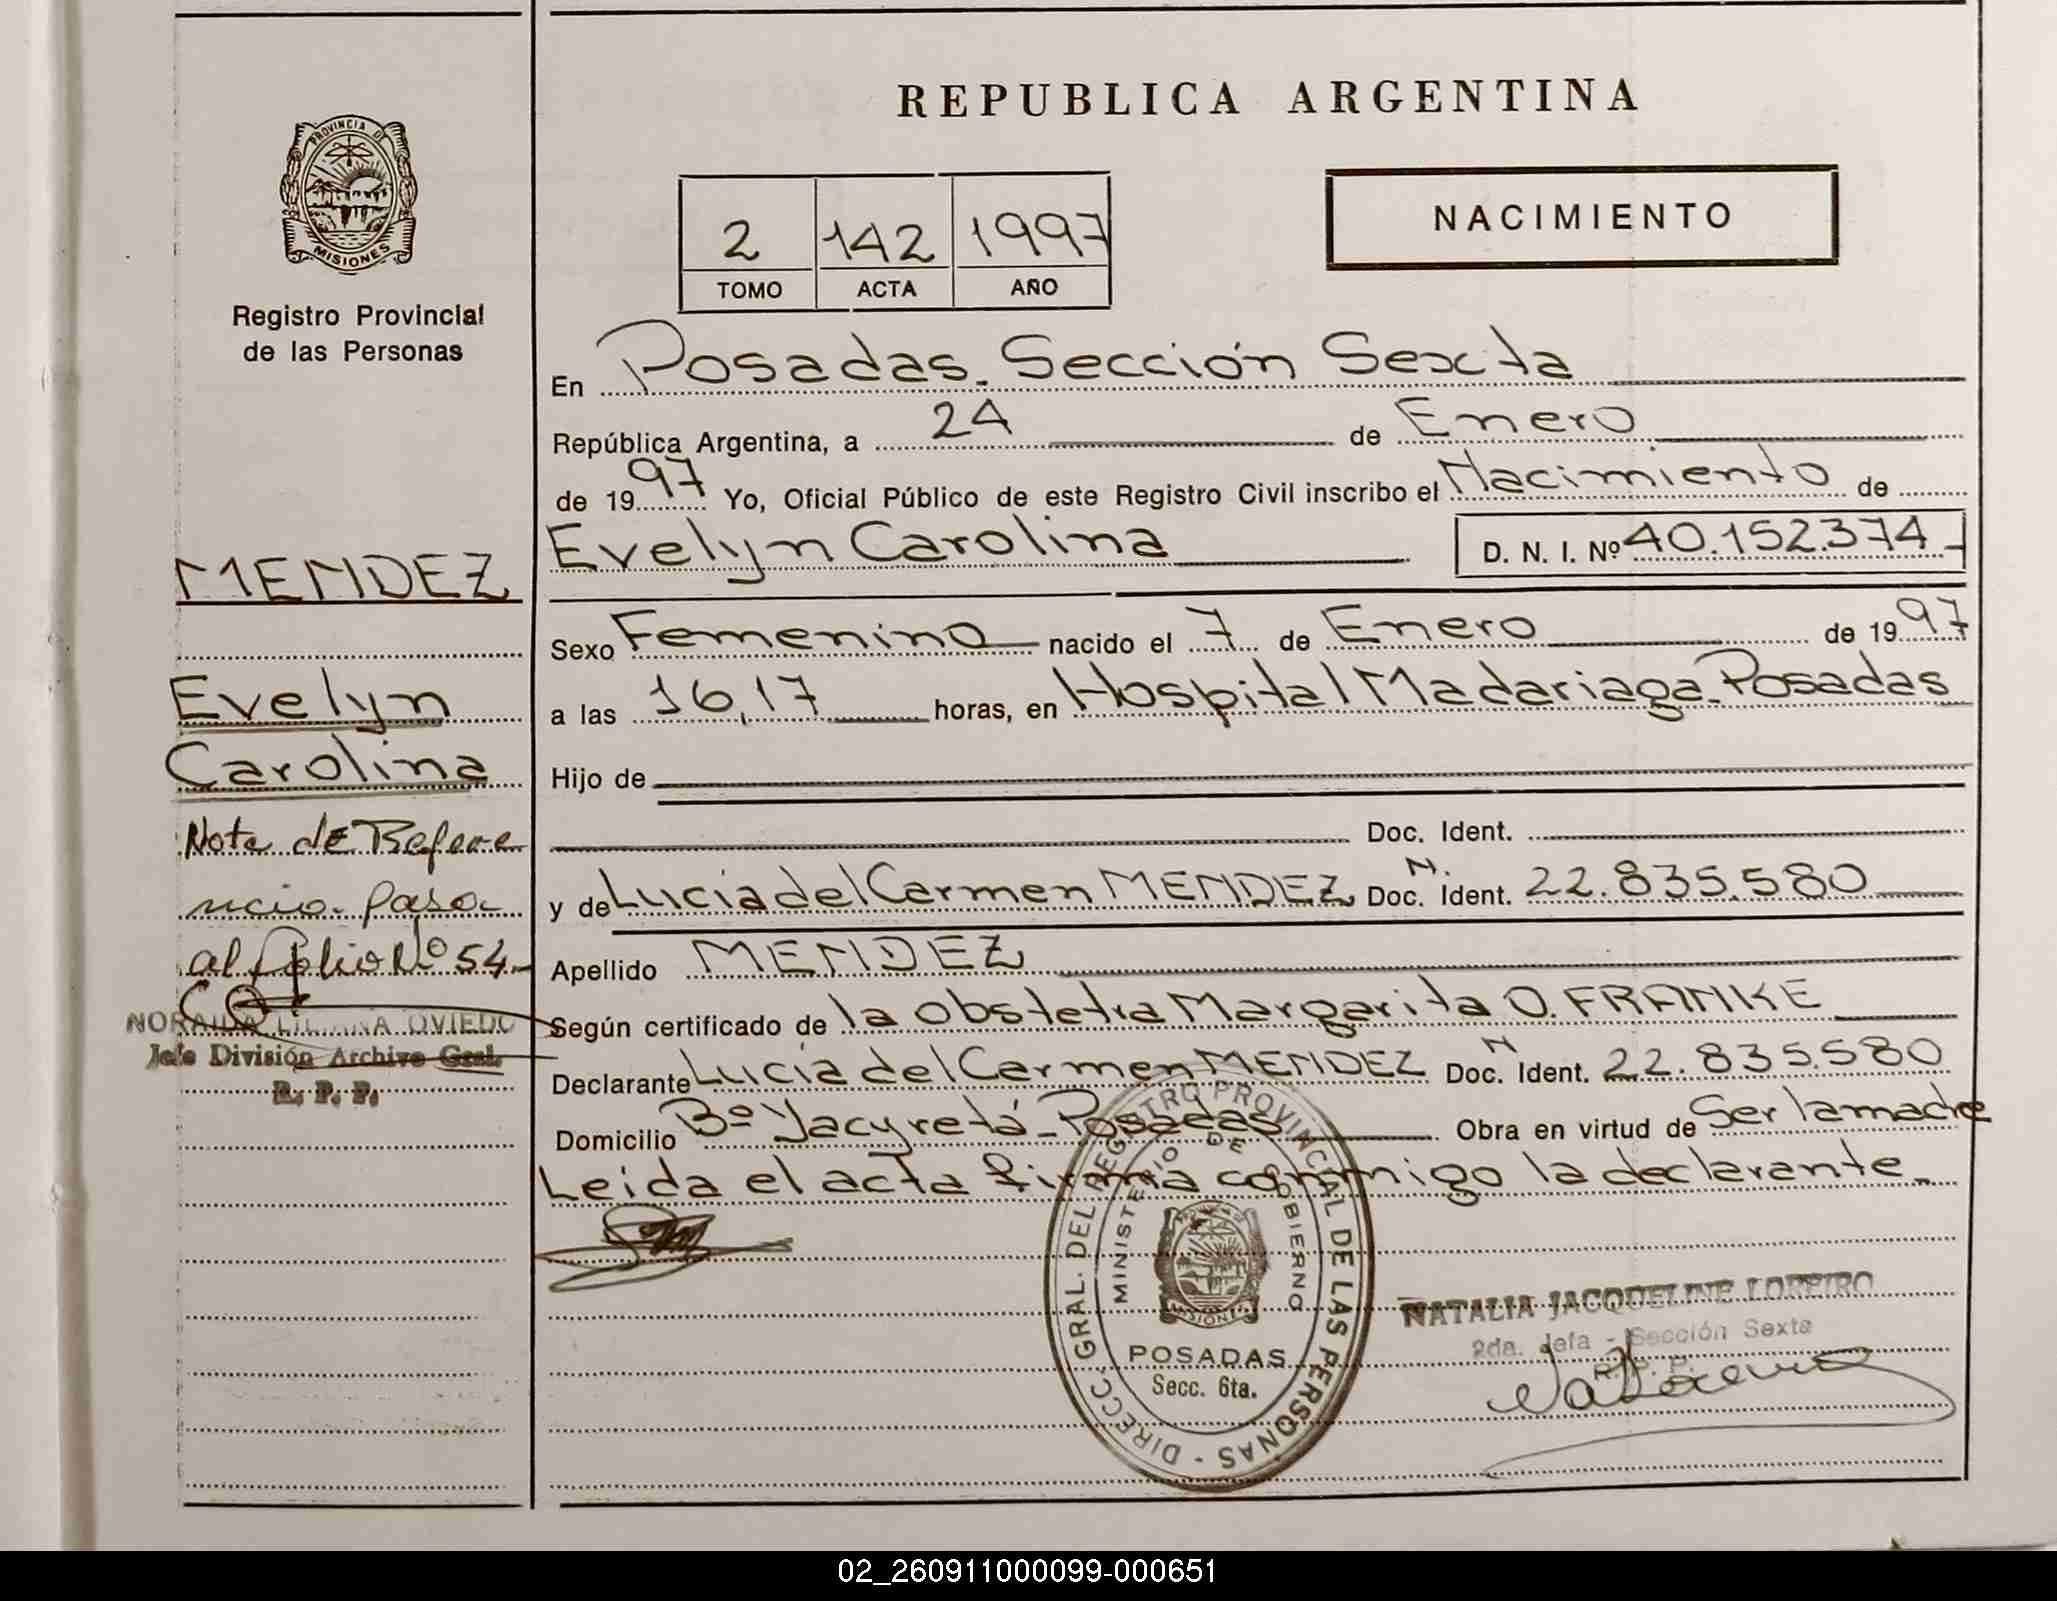 REPUBLICA ARGENTINA
PROVINCIA DE
MISIONES
Registro Provincial
de las Personas
2 142 1997
TOMO ACTA AÑO
NACIMIENTO
En Posadas. Sección Sexta
República Argentina, a 24 de Enero
de 1997 Yo, Oficial Público de este Registro Civil inscribo el Nacimiento de
Evelyn Carolina D. N. I. Nº 40.152.374
Sexo Femenino nacido el 7 de Enero de 1997
a las 16,17 horas, en Hospital Madariaga. Posadas
Hijo de
Doc. Ident.
y de Lucia del Carmen MENDEZ Doc. N. Ident. 22.835.580
Apellido MENDEZ
Según certificado de la Obstetra Margarita O. FRANKE
Declarante Lucía del Carmen MENDEZ Doc. N Ident. 22.835.580
Domicilio Bº Yacyretá - Posadas Obra en virtud de Ser la madre
Leida el acta firma conmigo la declarante.
MENDEZ
Evelyn
Carolina
Nota de Refere
ncia. pasa
al folio Nº 54.
NORAIDA LILIANA OVIEDO
Jefe División Archivo Gral.
R. P. P.
DIRECC. GRAL. DEL REGISTRO PROVINCIAL DE LAS PERSONAS -
MINISTERIO DE GOBIERNO
MISIONES
POSADAS
Secc. 6ta.
NATALIA JACQUELINE LOREIRO
2da. Jefa - Sección Sexta
R. P. P.
02_260911000099-000651